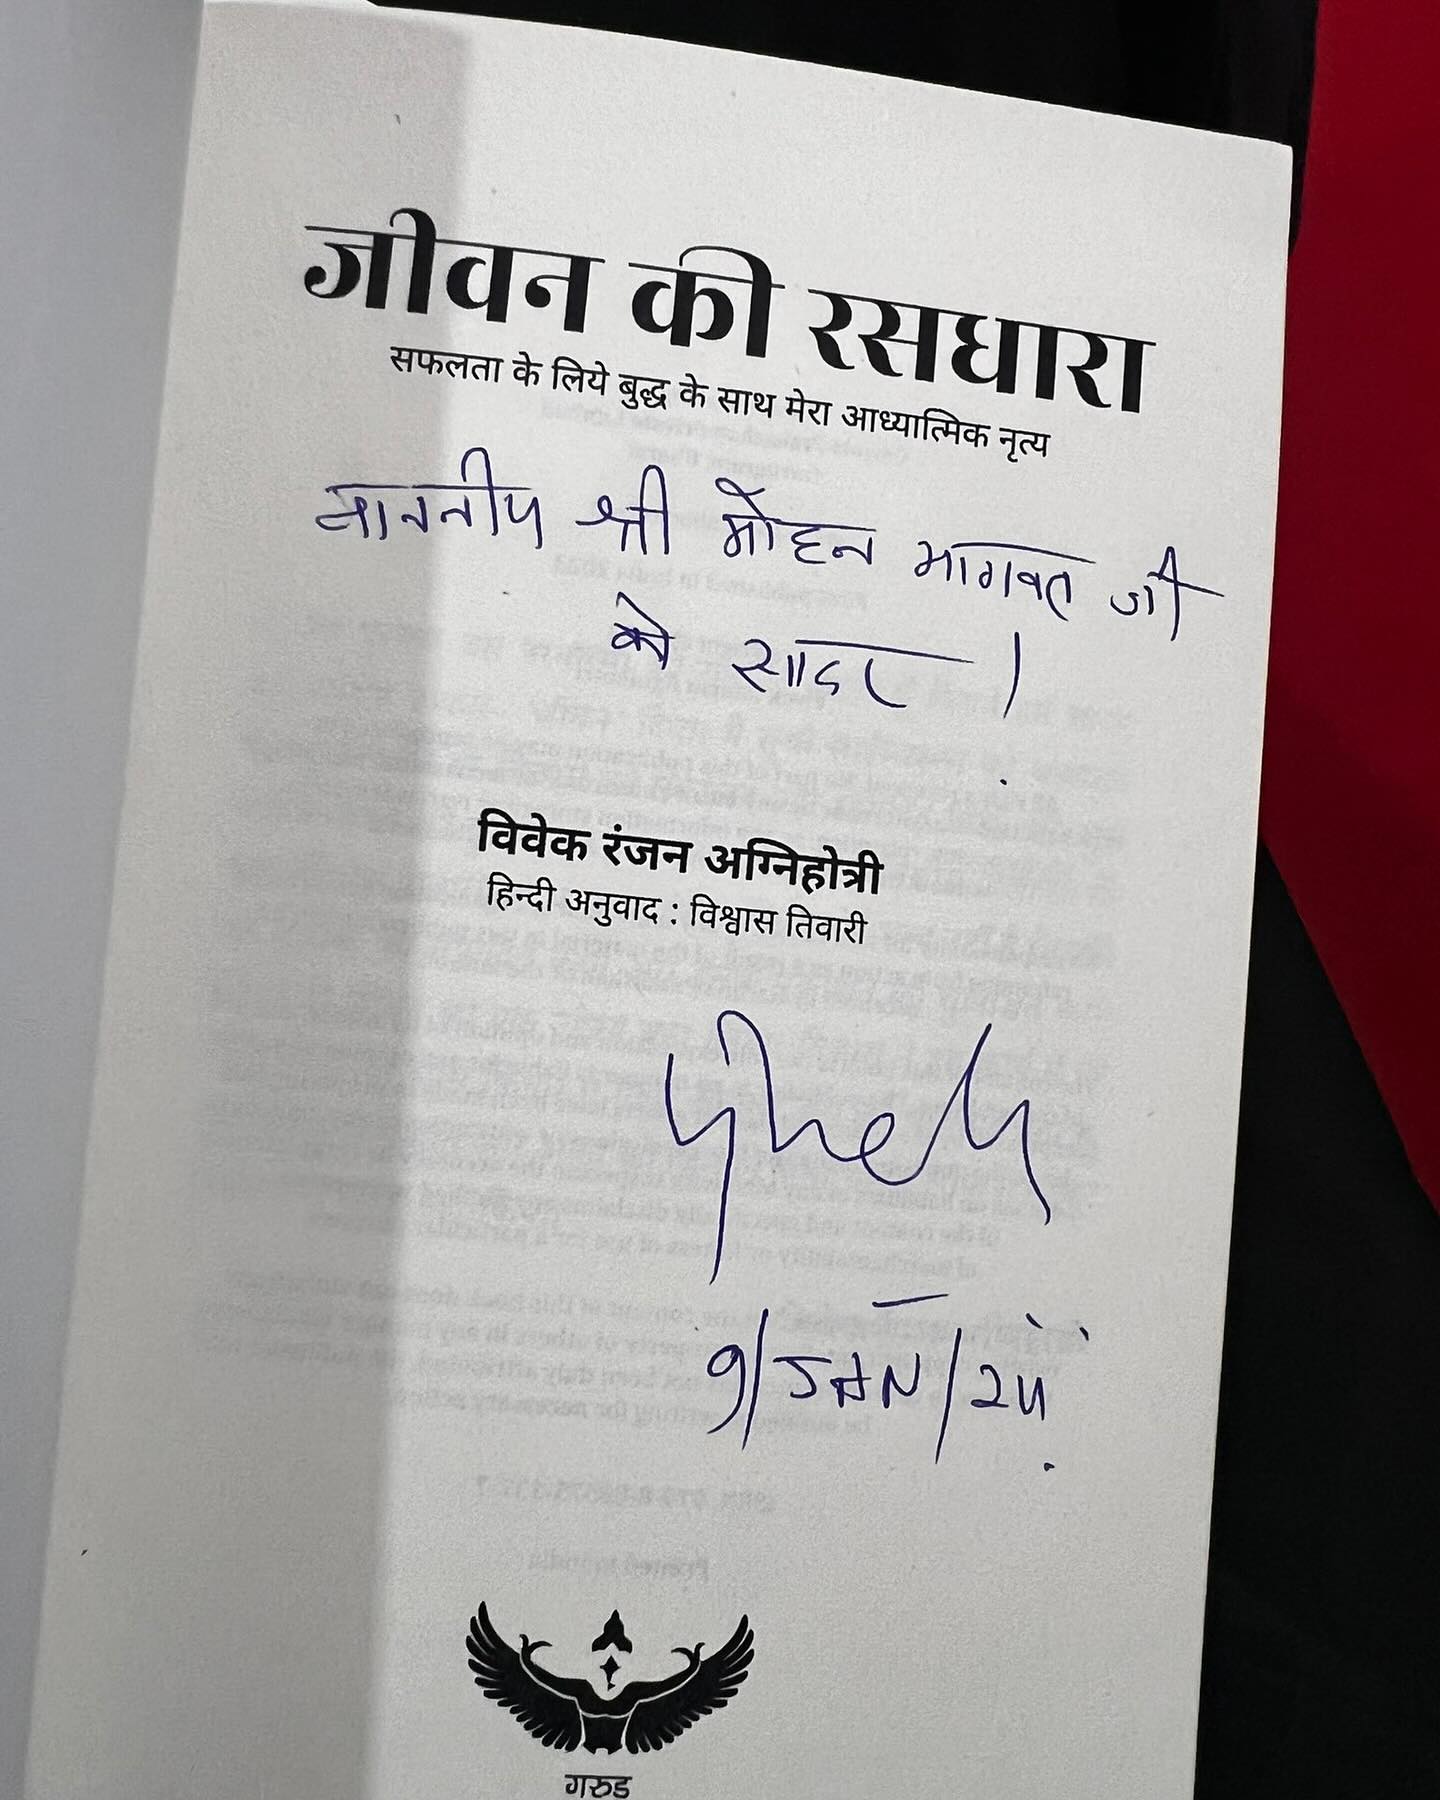 जीवन की रसधारा
सफलता के लिये बुद्ध के साथ मेरा आध्यात्मिक नृत्य
माननीय श्री मोहन भागवत जी
को सादर !
विवेक रंजन अग्निहोत्री
हिन्दी अनुवाद : विश्वास तिवारी
9/JAN/24
गरुड